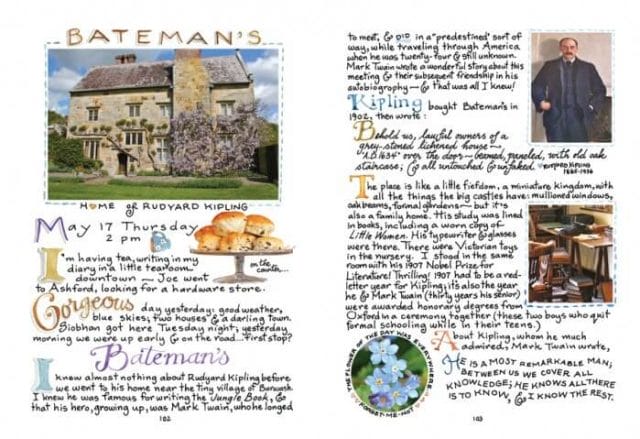 BATEMAN'S
HOME of RUDYARD KIPLING
May 17 Thursday
2 pm
on the
counter...
I'm having tea, writing in my
diary in a little tearoom
downtown — Joe went
to Ashford, looking for a hardware store.
Gorgeous day yesterday: good weather,
blue skies; two houses & a darling town.
Siobhan got here Tuesday night; yesterday
morning we were up early & on the road... first stop?
Bateman's
I knew almost nothing about Rudyard Kipling before
we went to his home near the tiny village of Burwash.
I knew he was famous for writing the Jungle Book, &
that his hero, growing up, was Mark Twain, who he longed
102
to meet, & DID in a "predestined" sort of
way, while traveling through America
when he was twenty-four & still unknown.
Mark Twain wrote a wonderful story about this
meeting & their subsequent friendship in his
autobiography — & that was all I knew!
Kipling bought Bateman's in
1902, then wrote:
Behold us, lawful owners of a
grey-stoned lichened house —
"A.D. 1634" over the door — beamed, paneled, with old oak
staircase; & all untouched & unfaked. RUDYARD KIPLING
1865-1936
The place is like a little fiefdom, a miniature kingdom, with
all the things the big castles have: mullioned windows,
oak beams, formal gardens — but it's
also a family home. His study was lined
in books, including a worn copy of
Little Women. His typewriter & glasses
were there. There were Victorian toys
in the nursery. I stood in the same
room with his 1907 Nobel Prize for
Literature! Thrilling! 1907 had to be a red-
letter year for Kipling; it's also the year
he & Mark Twain (thirty years his senior)
were awarded honorary degrees from
Oxford in a ceremony together (these two boys who quit
formal schooling while in their teens.)
THE FLOWER OF THE DAY WAS EVERYWHERE
FORGET-ME-NOT
About Kipling, whom he much
admired, Mark Twain wrote,
HE IS A MOST REMARKABLE MAN;
BETWEEN US WE COVER ALL
KNOWLEDGE; HE KNOWS ALL THERE
IS TO KNOW, & I KNOW THE REST.
103